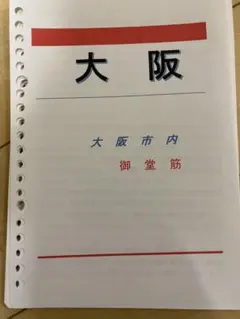 大阪
大阪市内
御堂筋